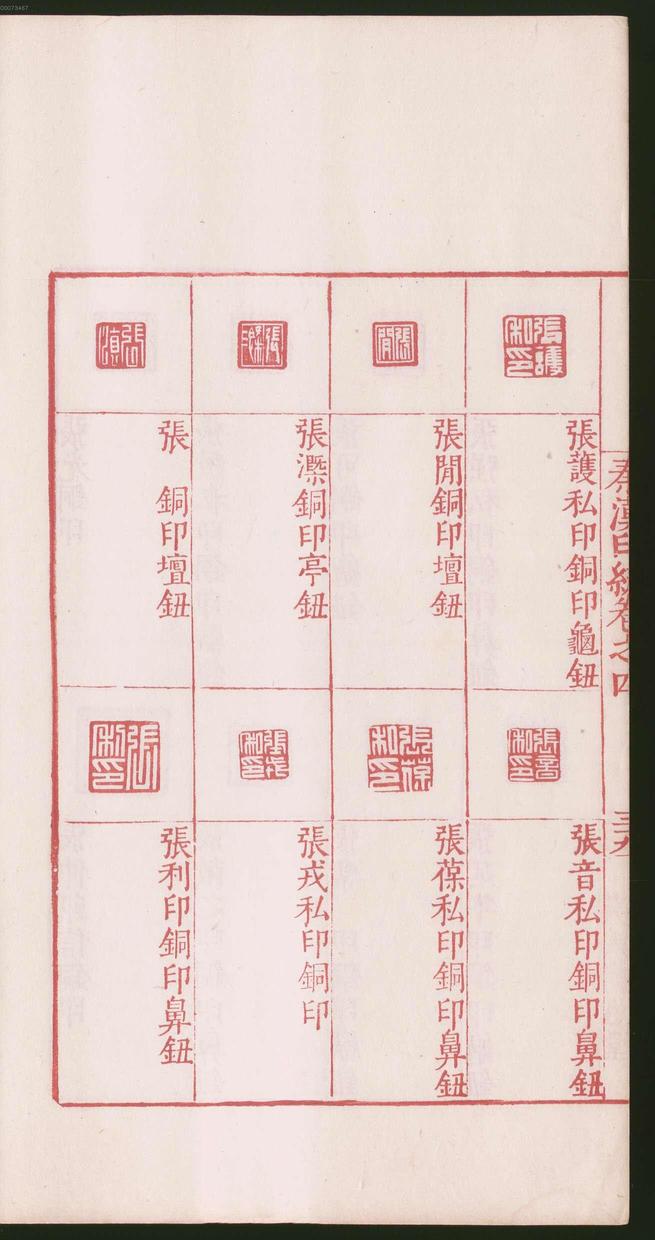 00073467
秦漢印統卷之四
三九
張護私印銅印龜鈕
張閒銅印壇鈕
張濼銅印亭鈕
張 銅印壇鈕
張音私印銅印鼻鈕
張葆私印銅印鼻鈕
張戎私印銅印
張利印銅印鼻鈕